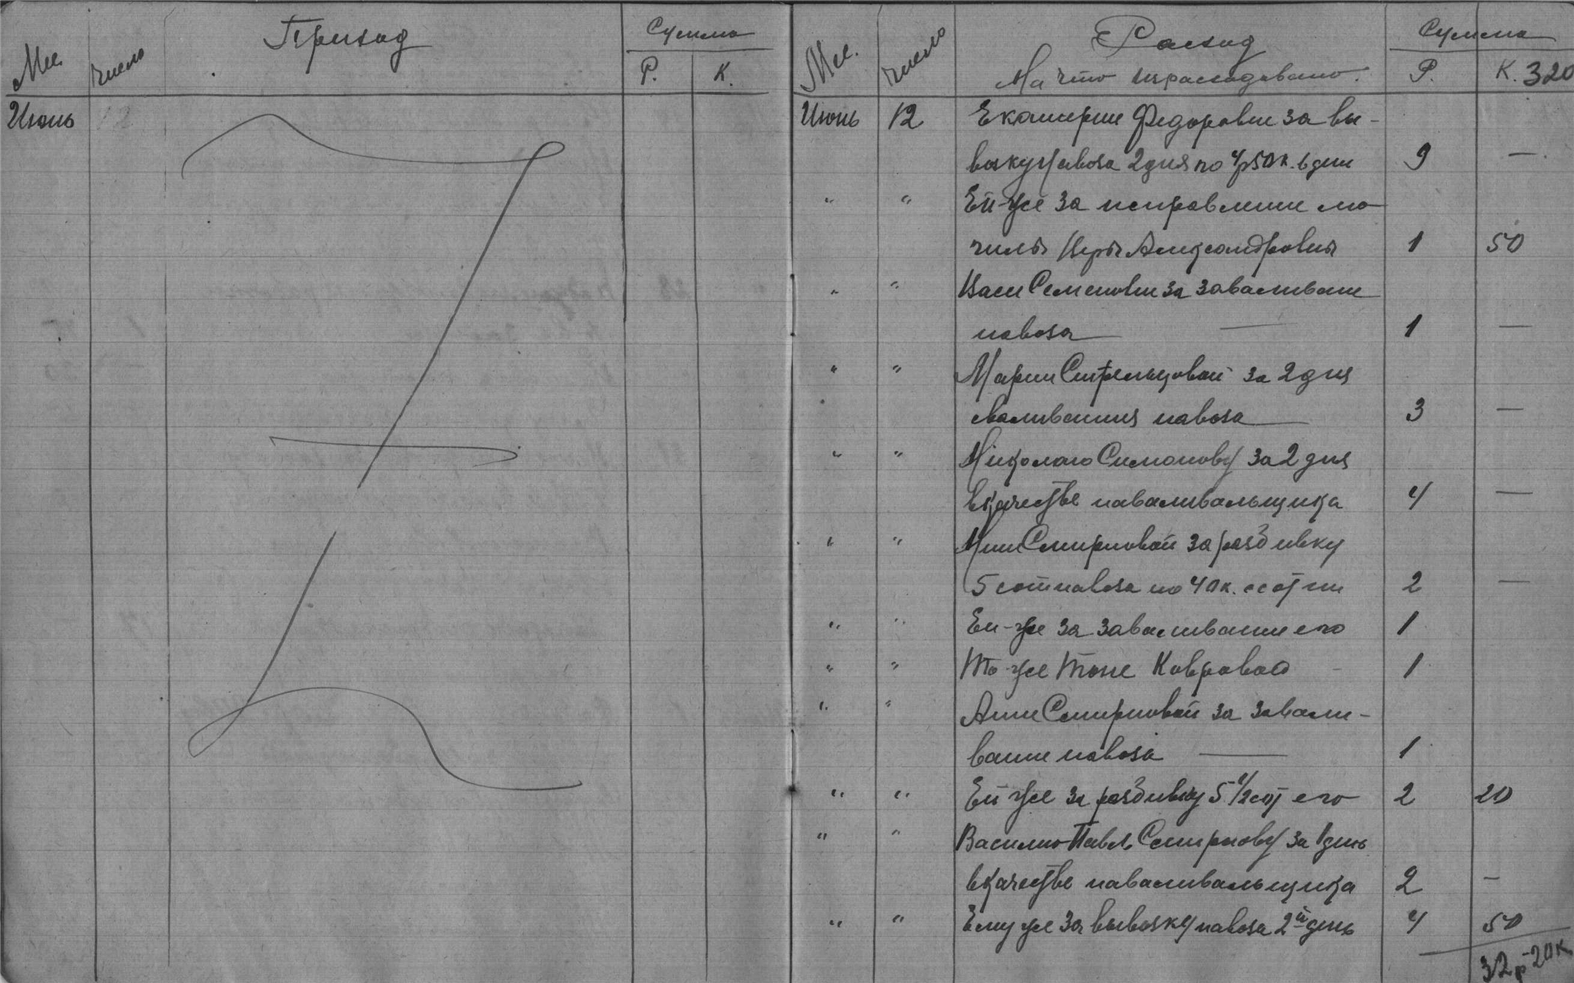 Приход
Сумма
Мес.
число
Р.
К.
Июнь
12
Расход
Сумма
Мес.
число
На что израсходовано.
Р.
К. 320
Июнь 12 Екатерине Федоровне за вы-
возку навоза 2 дня по 4р50к. в день 9 —
" " Ей-же за исправление мо-
гилы Веры Александровны 1 50
" " Семеновне за заваливание
навоза — 1 —
" " Марии Стрельцовой за 2 дня
сваливания навоза — 3 —
" " Николаю Симонову за 2 дня
в качестве наваливальщика 4 —
" " Смирновой за разбивку
5 сот навоза по 40к. с сотни 2 —
" " Ей-же за заваливание его 1
" " То-же Тоне Ковровой - 1
" " Анне Смирновой за завали-
вание навоза — 1
" " Ей же за разбивку 5 1/2 сот его 2 20
" " Василию Павл. Смирнову за 1 день
в качестве наваливальщика 2 -
" " Ему же за вывозку навоза 2й день 4 50
32р-20к